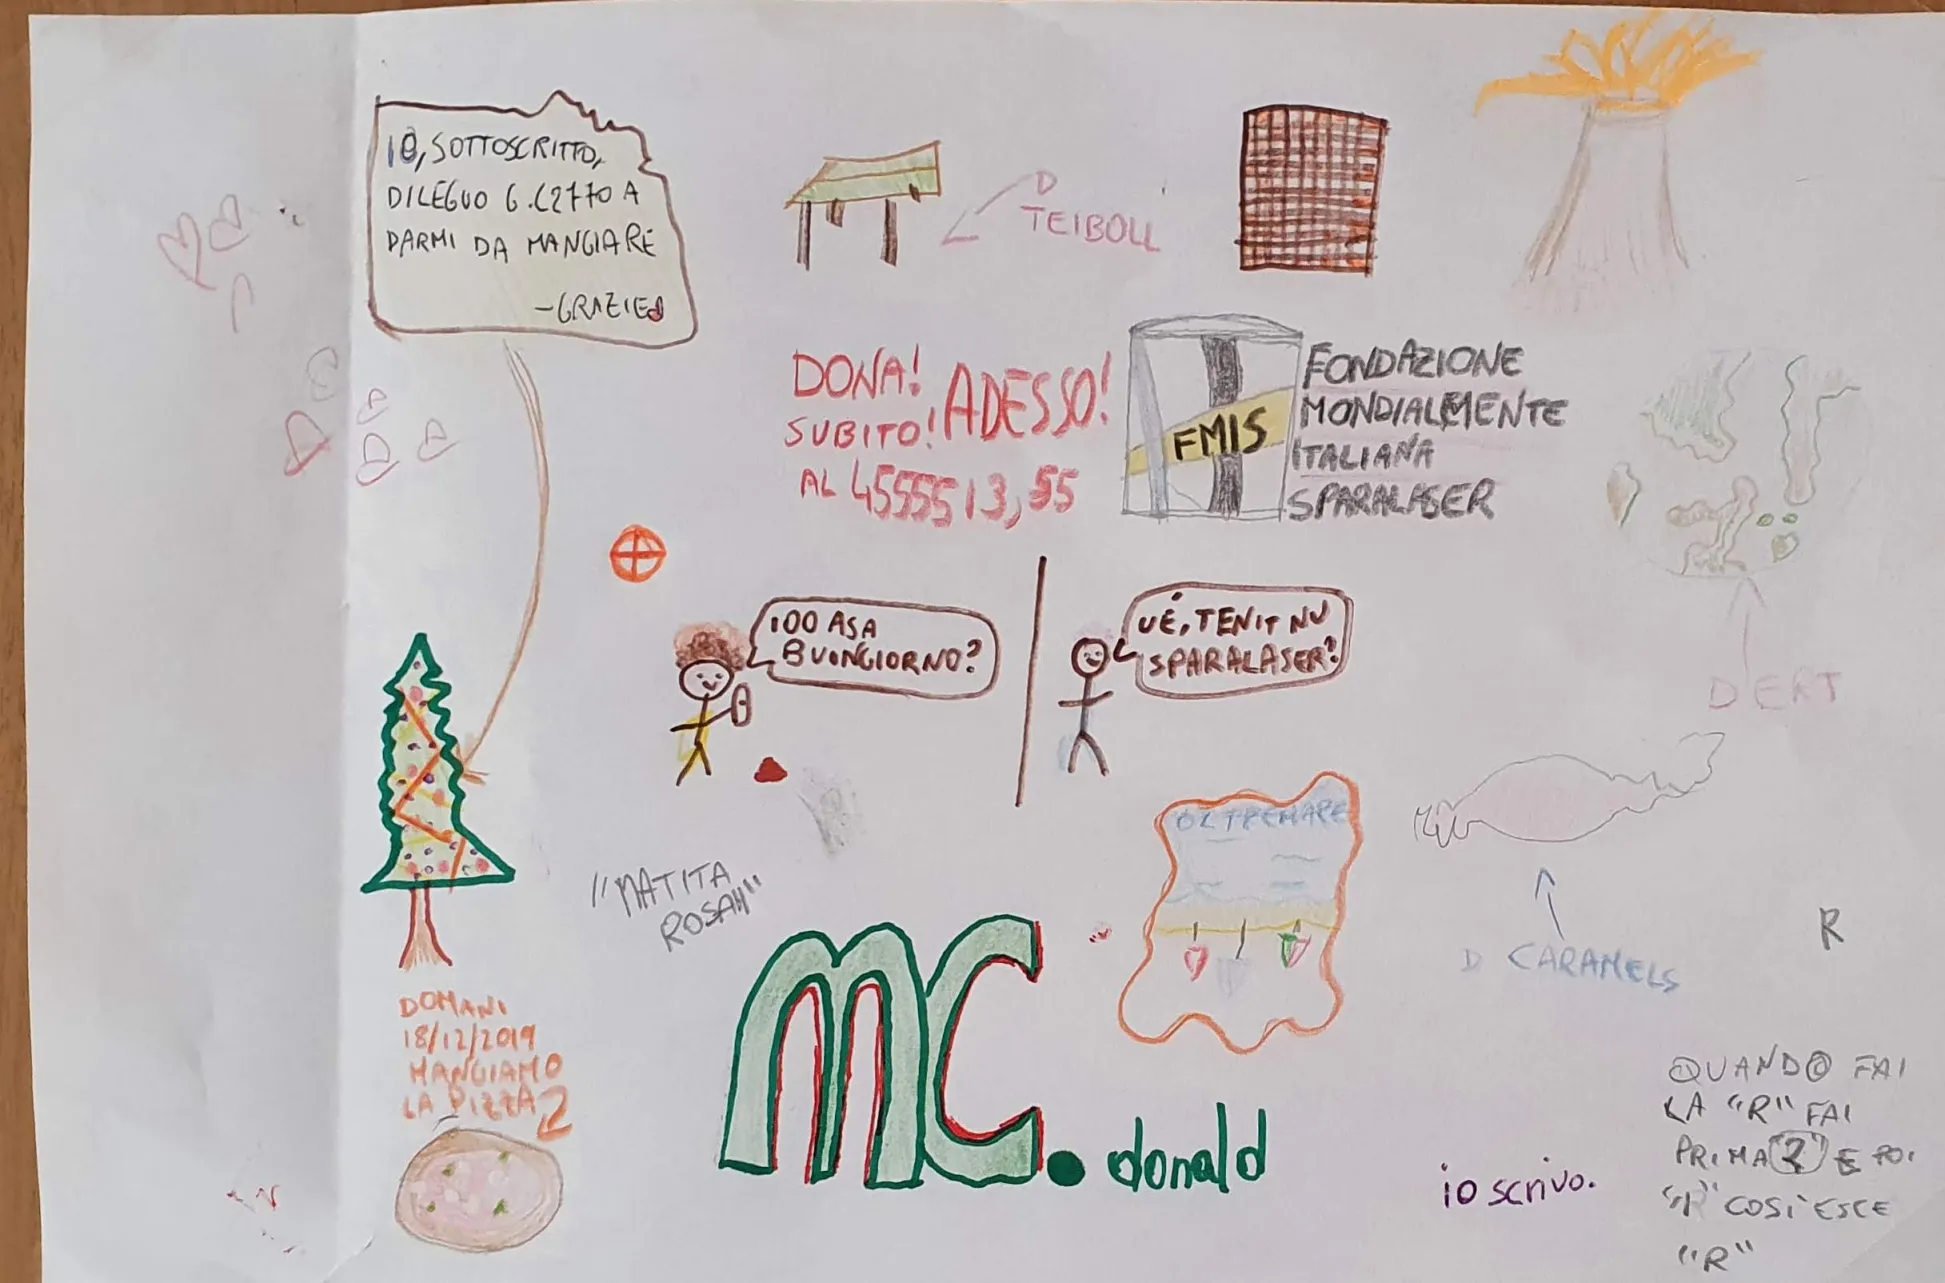 IO, SOTTOSCRITTO,
DILEGUO A
DARMI DA MANGIARE
-GRAZIE
D
TEIBOLL
DONA! ADESSO!
SUBITO!
AL 4555513,55
FMIS
FONDAZIONE
MONDIALMENTE
ITALIANA
SPARALASER
100 ASA
BUONGIORNO?
UÉ, TENIT NU
SPARALASER?
D ERT
OLTREMARE
"MATITA
ROSAH"
D CARAMELS
R
DOMANI
18/12/2019
MANGIAMO
LA PIZZA
MC.donald
io scrivo.
QUANDO FAI
LA "R" FAI
PRIMA "2" E POI
COSÌ ESCE
"R"